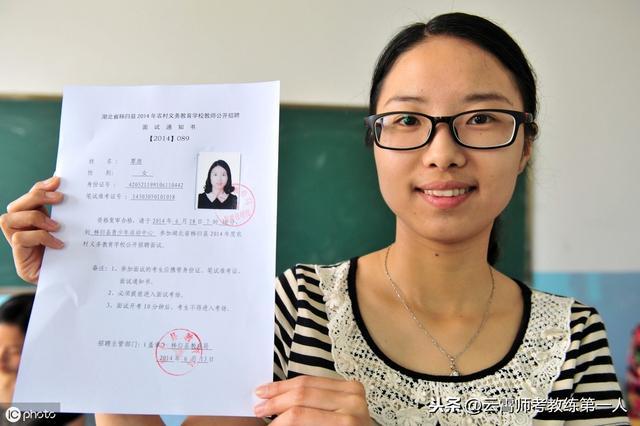 湖北省秭归县2014年农村义务教育学校教师公开招聘
面试通知书
【2014】089
姓 名：
性 别： 女
身份证号：
笔试准考证号：
资格复审合格，请于2014年6月28日7
到 秭归县青少年活动中心 参加湖北省秭归县2014年度农
村义务教育学校公开招聘面试。
备注：1、参加面试的考生应携带身份证、笔试准考证、
面试通知书。
2、必须提前进入面试考场。
3、面试开考10分钟后，考生不得进入考场。
招聘主管部门：（盖章）秭归县教育局
2014年6月
iC photo
头条@云霄师考教练第一人